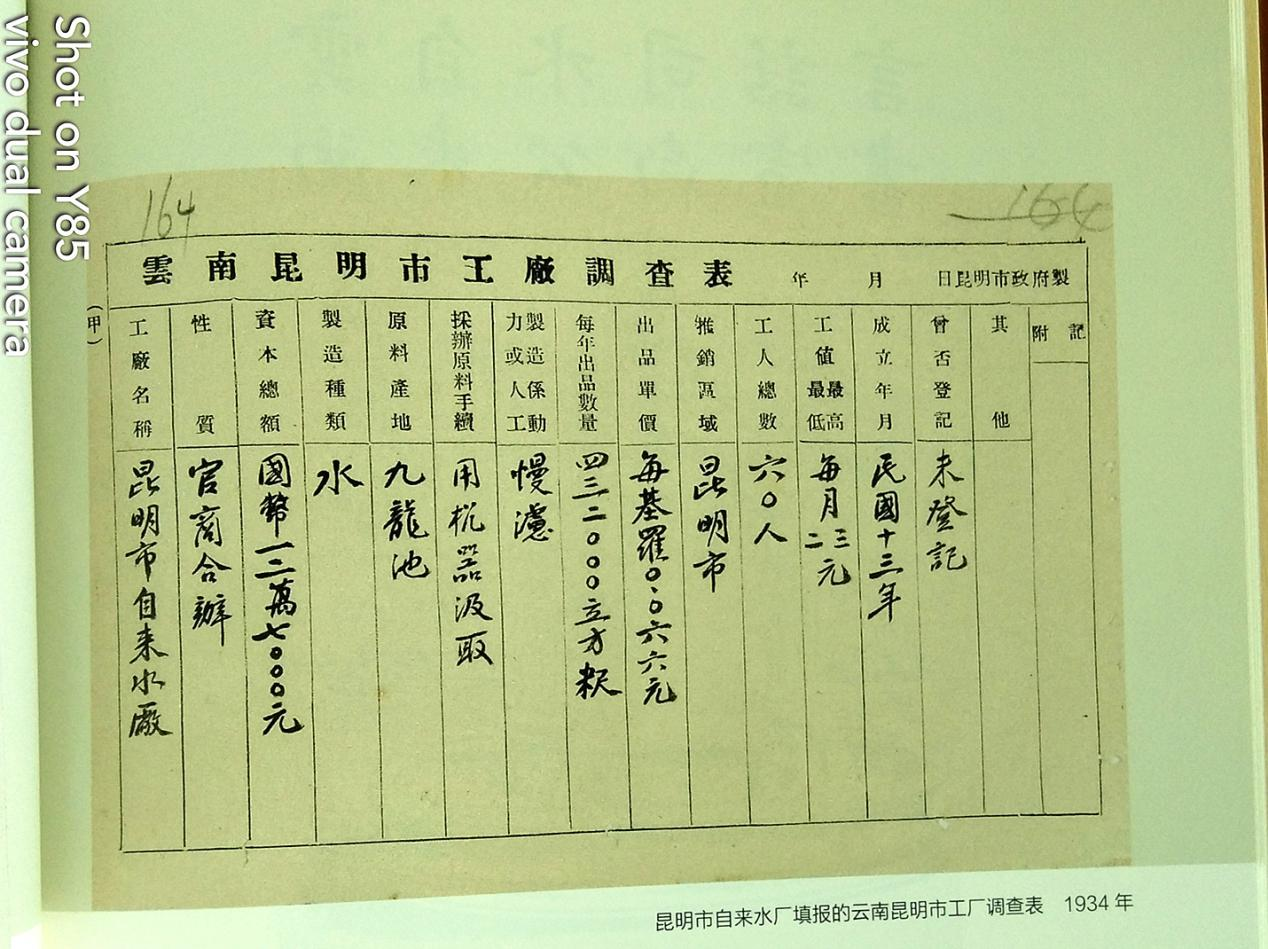 164
164
雲南昆明市工廠調查表 年 月 日昆明市政府製
(甲)
工廠名稱
昆明市自来水廠
性質
官商合辦
資本總額
國幣一二萬七〇〇〇元
製造種類
水
原料產地
九龍池
採辦原料手續
用机器汲取
製造係動力或人工
慢濾
每年出品數量
四三二〇〇〇立方粎
出品單價
每基羅〇.〇六六元
推銷區域
昆明市
工人總數
六〇人
工值最高最低
每月三二三元
成立年月
民國十三年
曾否登記
未登記
其他
附記
昆明市自来水厂填报的云南昆明市工厂调查表 1934年
Shot on Y85
vivo dual camera